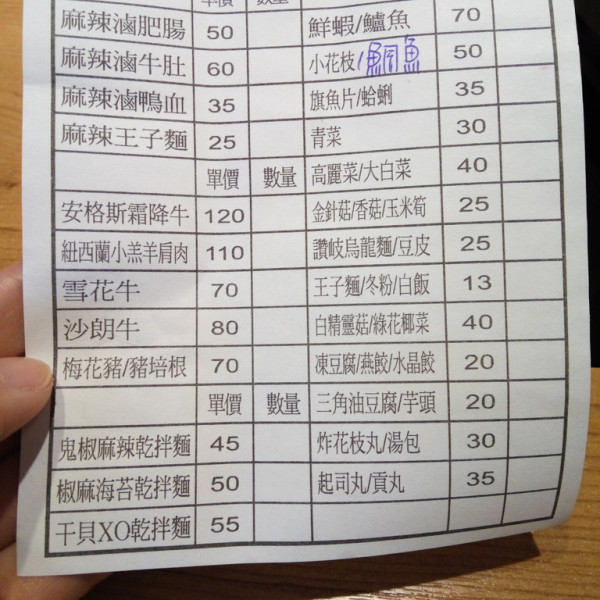 單價 數量
麻辣滷肥腸 50 鮮蝦/鱸魚 70
麻辣滷牛肚 60 小花枝/鯛魚 50
麻辣滷鴨血 35 旗魚片/蛤蜊 35
麻辣王子麵 25 青菜 30
單價 數量 高麗菜/大白菜 40
安格斯霜降牛 120 金針菇/香菇/玉米筍 25
紐西蘭小羔羊肩肉 110 讚岐烏龍麵/豆皮 25
雪花牛 70 王子麵/冬粉/白飯 13
沙朗牛 80 白精靈菇/綠花椰菜 40
梅花豬/豬培根 70 凍豆腐/燕餃/水晶餃 20
單價 數量 三角油豆腐/芋頭 20
鬼椒麻辣乾拌麵 45 炸花枝丸/湯包 30
椒麻海苔乾拌麵 50 起司丸/貢丸 35
干貝XO乾拌麵 55